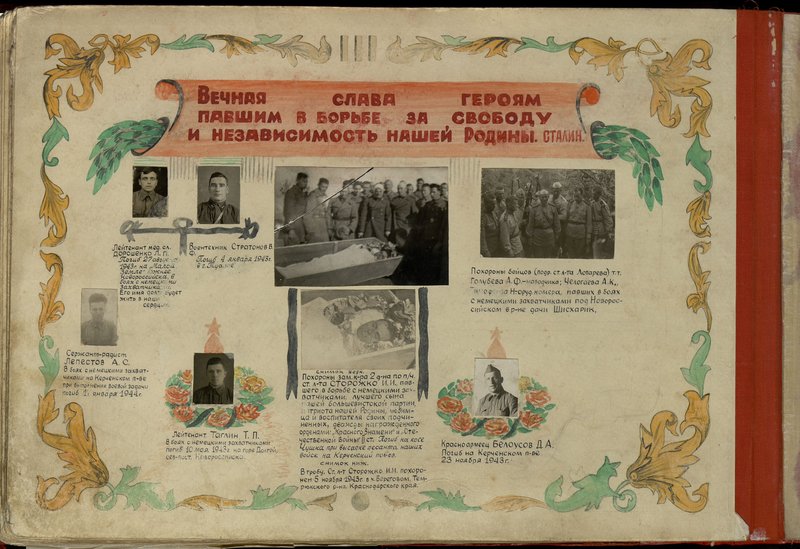 Вечная слава героям
павшим в борьбе за свободу
и независимость нашей Родины. Сталин.
Лейтенант мед. сл.
Дорошенко Л. П.
1943г. на "Малой
Земле" южнее
Новороссийска, в
боях с немецкими
захватчиками.
Его имя будет
жить в наших
сердцах
Воентехник Стратонов В.
Ф.
Погиб 4 января 1943г.
в г.
Похороны бойцов (подр. ст. л-та Лотарева) т.т.
Голубева А.Ф.-наводчика; Челогаева А.К.,
номера, павших в боях
с немецкими захватчиками под Новорос-
сийском в р-не дачи Шисхарик.
Сержант-радист
Лепестов А. С.
В боях с немецкими захват-
чиками на Керченском п-ве
при выполнении боевой задачи
погиб января 1944г.
Лейтенант Таглин Т. П.
В боях с немецкими захватчиками
погиб 10 мая 1943г. на горе Долгой,
сев.-вост. Новороссийска.
снимок верх.
Похороны зам. к-ра 2 д-на по п/ч.
ст. л-та Сторожко И.И., пав-
шего в борьбе с немецкими за-
хватчиками; лучшего сына
нашей большевистской партии,
патриота нашей Родины, любим-
ца и воспитателя своих подчи-
ненных, дважды награжденного
орденами: "Красного Знамени" и "Оте-
чественной Войны" ст. Погиб на косе
Чушка при высадке десанта наших
войск на Керченский п-ов.
снимок ниж.
В гробу. Ст. л-т Сторожко И.И. похоро-
нен 5 ноября 1943г. в к. Береговом, Тем-
рюкского р-на, Краснодарского края.
Красноармеец Белоусов Д. А.
Погиб на Керченском п-ве
23 ноября 1943г.